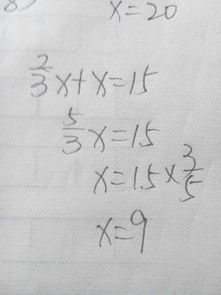 8)
x=20
2/3 x+x=15
5/3 x=15
x=15×3/5
x=9